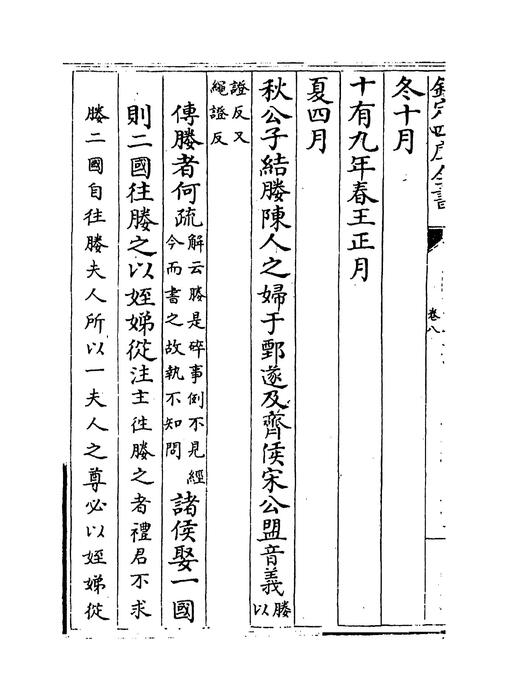 欽定四庫全書
卷八
冬十月
十有九年春王正月
夏四月
秋公子結媵陳人之婦于鄄遂及齊侯宋公盟音義媵以
證反又
繩證反
傳媵者何疏解云媵是碎事例不見經
今而書之故執不知問諸侯娶一國
則二國往媵之以姪娣從注主往媵之者禮君不求
媵二國自往媵夫人所以一夫人之尊必以姪娣從